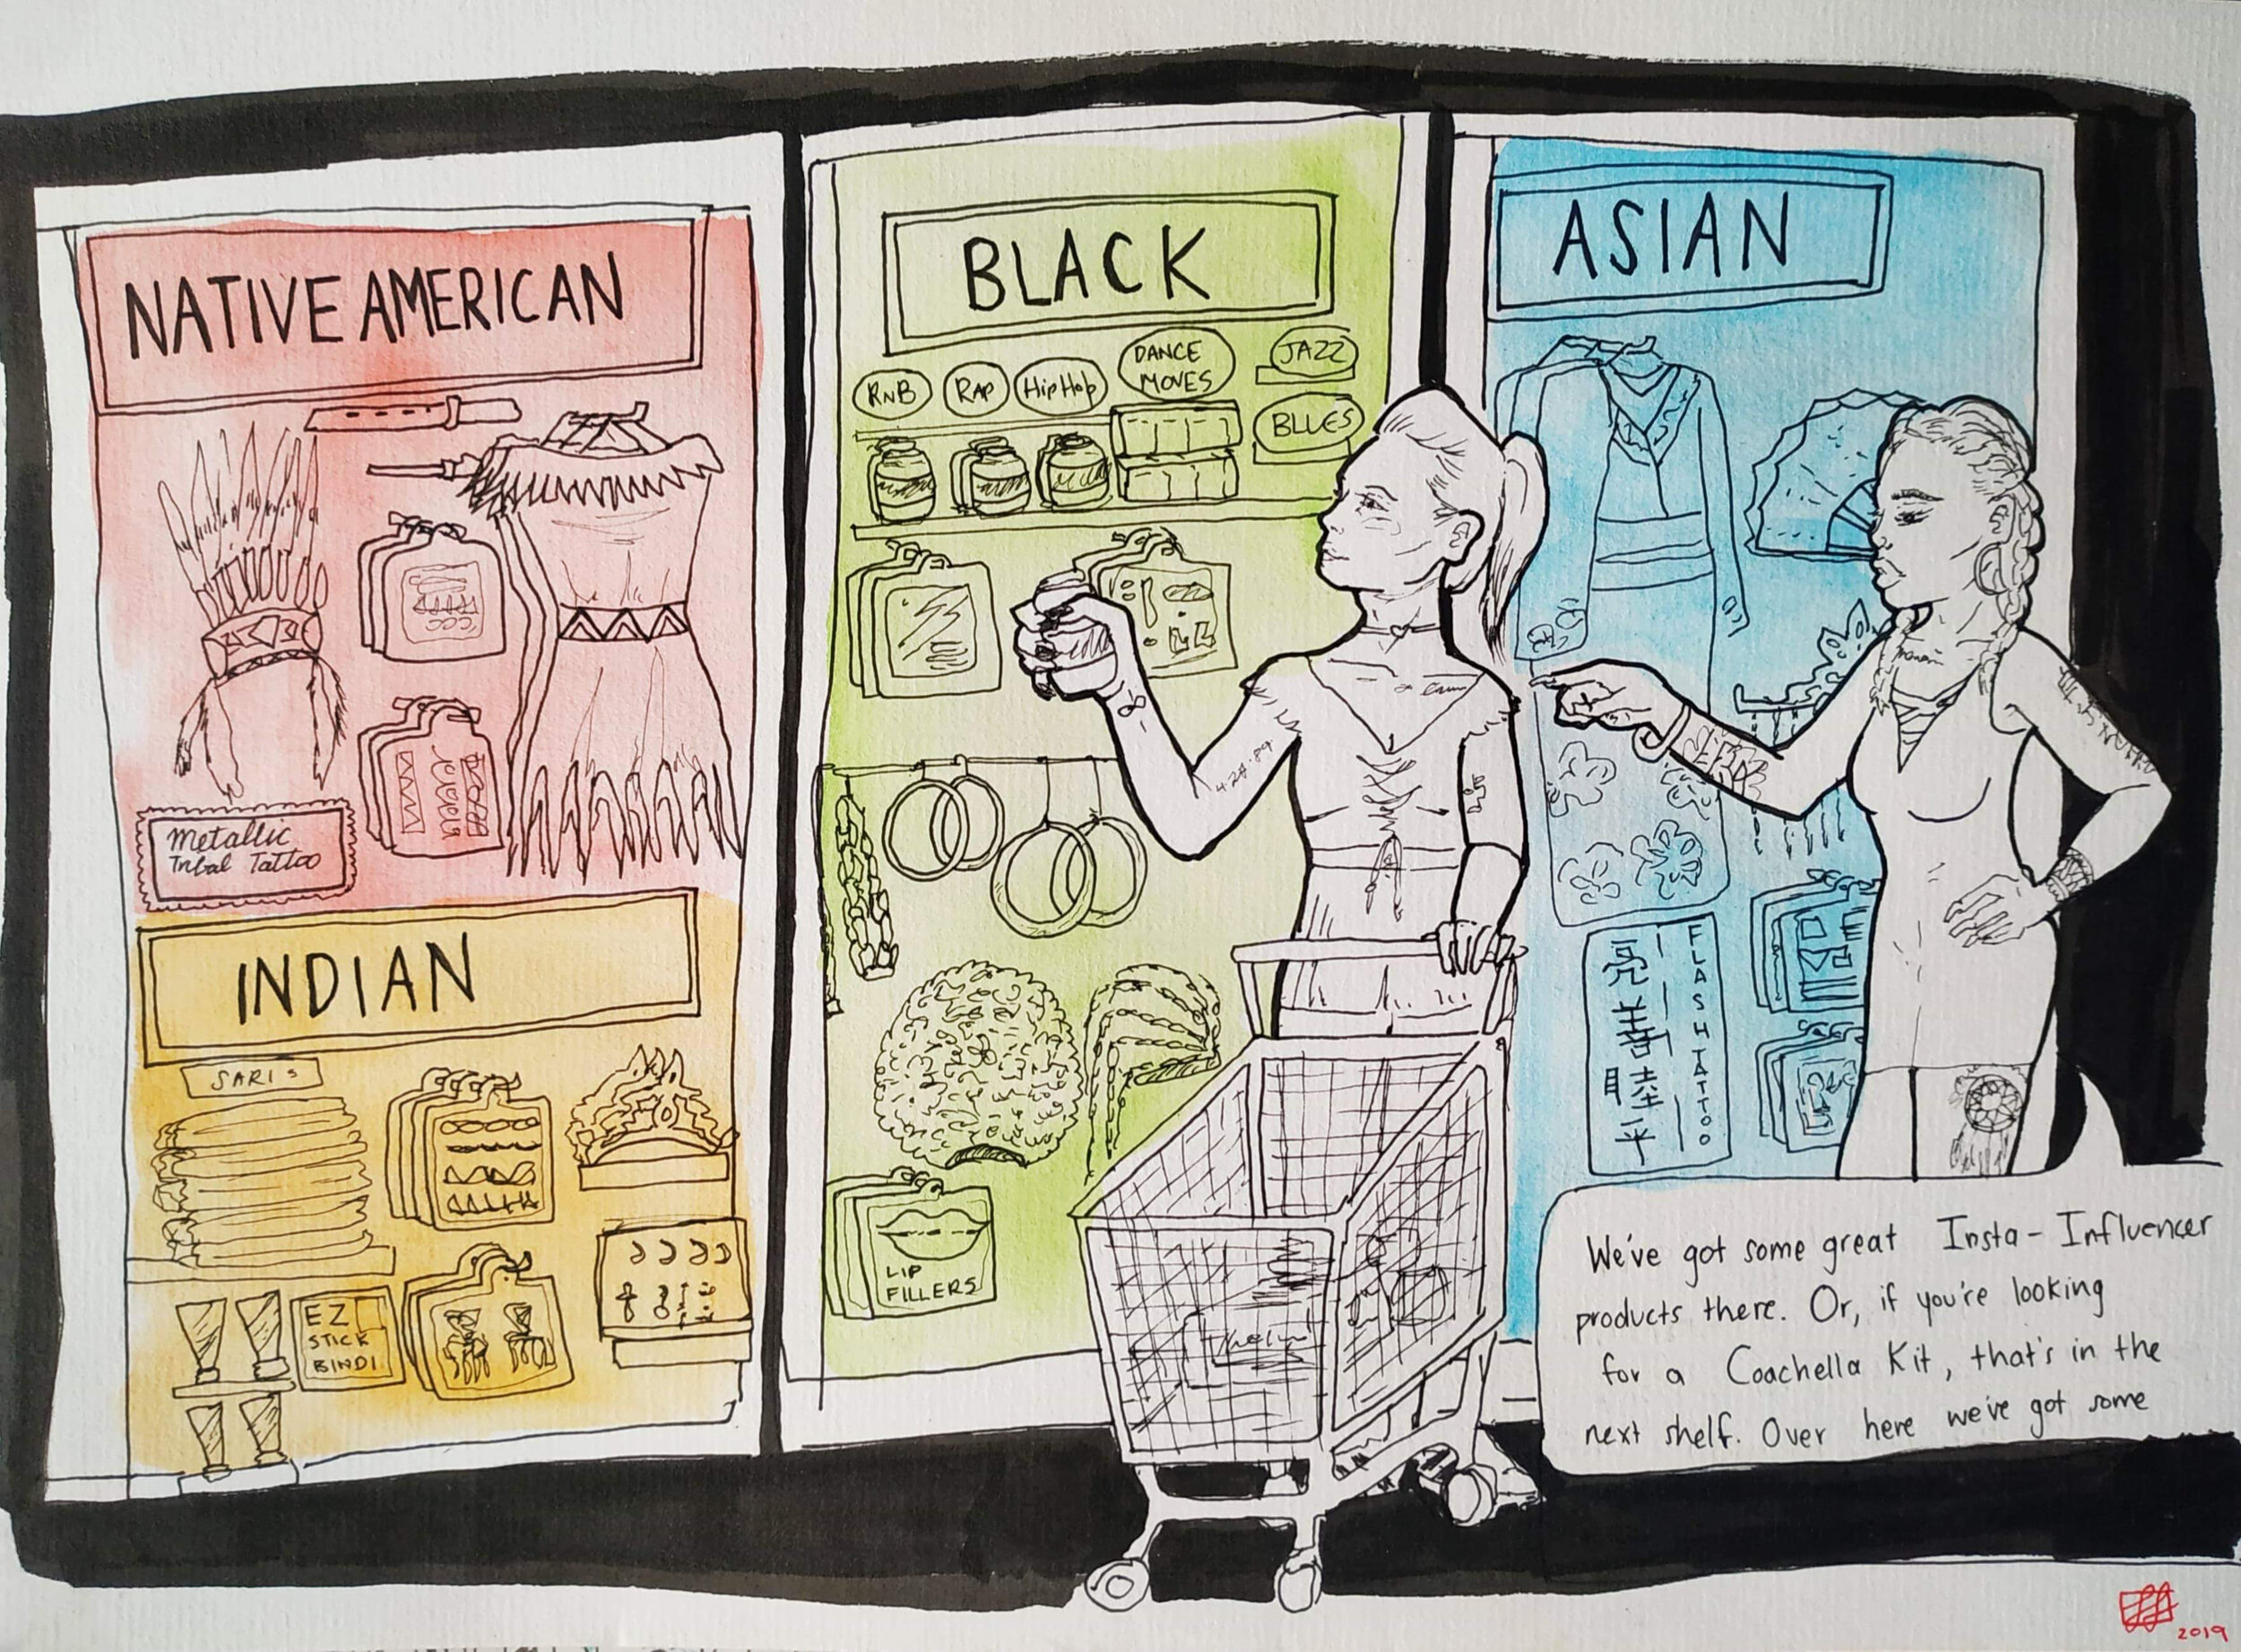 NATIVE AMERICAN
Metallic
Tribal Tattoo
INDIAN
SARIS
EZ
STICK
BINDI
BLACK
RnB
RAP
HipHop
DANCE
MOVES
JAZZ
BLUES
4.20.89
LIP
FILLERS
ASIAN
亮善睦平
FLASH TATTOO
We've got some great Insta-Influencer
products there. Or, if you're looking
for a Coachella Kit, that's in the
next shelf. Over here we've got some
2019